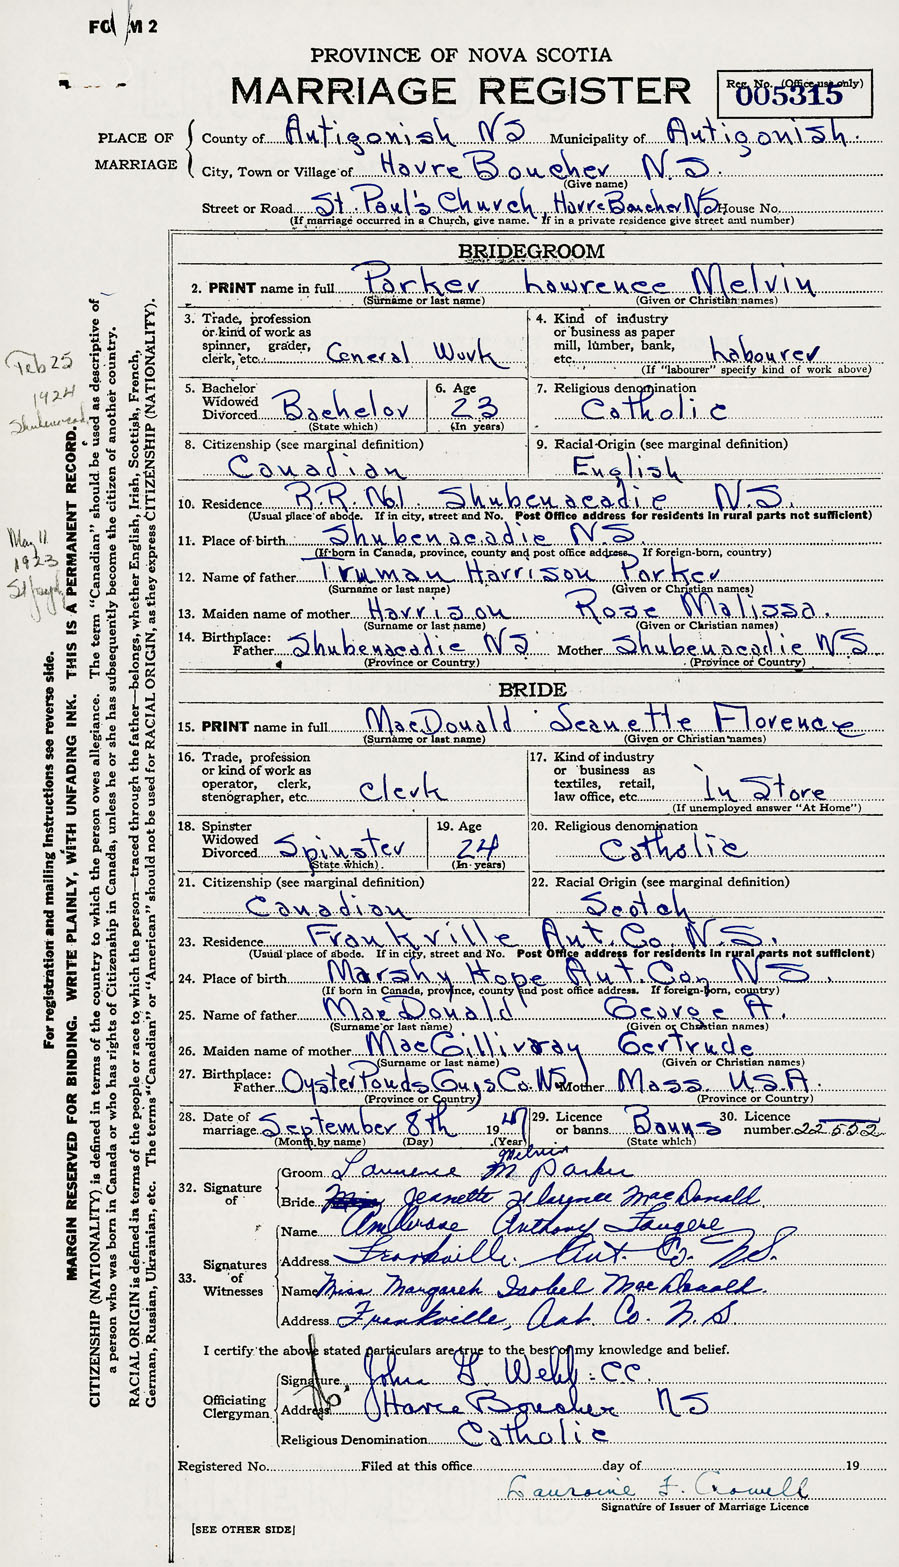 FORM 2
PROVINCE OF NOVA SCOTIA
MARRIAGE REGISTER
Reg. No. (Office use only)
005315
PLACE OF MARRIAGE
County of Antigonish NS Municipality of Antigonish.
City, Town or Village of Havre Boucher N.S.
(Give name)
Street or Road St. Paul's Church Havre Boucher NS House No.
(If marriage occurred in a Church, give name. If in a private residence give street and number)
BRIDEGROOM
2. PRINT name in full Parker Lawrence Melvin
(Surname or last name) (Given or Christian names)
3. Trade, profession or kind of work as spinner, grader, clerk, etc. General Work
4. Kind of industry or business as paper mill, lumber, bank, etc. Labourer
(If "labourer" specify kind of work above)
5. Bachelor Widowed Divorced Bachelor
(State which)
6. Age 23
(In years)
7. Religious denomination
Catholic
8. Citizenship (see marginal definition)
Canadian
9. Racial Origin (see marginal definition)
English
10. Residence R.R. No1. Shubenacadie N.S.
(Usual place of abode. If in city, street and No. Post Office address for residents in rural parts not sufficient)
11. Place of birth Shubenacadie N.S.
(If born in Canada, province, county and post office address. If foreign-born, country)
12. Name of father Truman Harrison Parker
(Surname or last name) (Given or Christian names)
13. Maiden name of mother Harrison Rose Malissa.
(Surname or last name) (Given or Christian names)
14. Birthplace:
Father Shubenacadie NS Mother Shubenacadie NS
(Province or Country) (Province or Country)
BRIDE
15. PRINT name in full MacDonald Jeanette Florence
(Surname or last name) (Given or Christian names)
16. Trade, profession or kind of work as operator, clerk, stenographer, etc. Clerk
17. Kind of industry or business as textiles, retail, law office, etc. In Store
(If unemployed answer "At Home")
18. Spinster Widowed Divorced Spinster
(State which)
19. Age 24
(In years)
20. Religious denomination
Catholic
21. Citizenship (see marginal definition)
Canadian
22. Racial Origin (see marginal definition)
Scotch
23. Residence Frankville Ant. Co N.S.
(Usual place of abode. If in city, street and No. Post Office address for residents in rural parts not sufficient)
24. Place of birth Marshy Hope Ant. Co, NS.
(If born in Canada, province, county and post office address. If foreign-born, country)
25. Name of father MacDonald George A.
(Surname or last name) (Given or Christian names)
26. Maiden name of mother MacGillivray Gertrude
(Surname or last name) (Given or Christian names)
27. Birthplace:
Father Oyster Ponds Guys Co. NS Mother Mass. U.S.A.
(Province or Country) (Province or Country)
28. Date of marriage September 8th 1947
(Month by name) (Day) (Year)
29. Licence or banns Banns
(State which)
30. Licence number 22552
32. Signature of
Groom Lawrence M. Parker
Melvin
Bride Jeanette Florence MacDonald
33. Signatures of Witnesses
Name Ambrose Anthony Fougere
Address Frankville. Ant. Co. N.S.
Name Miss Margaret Isobel MacDonald.
Address Frankville, Ant. Co. N.S
I certify the above stated particulars are true to the best of my knowledge and belief.
Officiating Clergyman
Signature John G. Webb. CC.
Address Havre Boucher NS
Religious Denomination Catholic
Registered No. Filed at this office day of 19
Lauraine F. Crowell
Signature of Issuer of Marriage Licence
[SEE OTHER SIDE]
Feb 25
1924
Shubenacadie
May 11
1923
For registration and mailing instructions see reverse side.
MARGIN RESERVED FOR BINDING. WRITE PLAINLY, WITH UNFADING INK. THIS IS A PERMANENT RECORD.
CITIZENSHIP (NATIONALITY) is defined in terms of the country to which the person owes allegiance. The term "Canadian" should be used as descriptive of
a person who was born in Canada or who has rights of Citizenship in Canada, unless he or she has subsequently become the citizen of another country.
RACIAL ORIGIN is defined in terms of the people or race to which the person—traced through the father—belongs, whether English, Irish, Scottish, French,
German, Russian, Ukrainian, etc. The terms "Canadian" or "American" should not be used for RACIAL ORIGIN, as they express CITIZENSHIP (NATIONALITY).